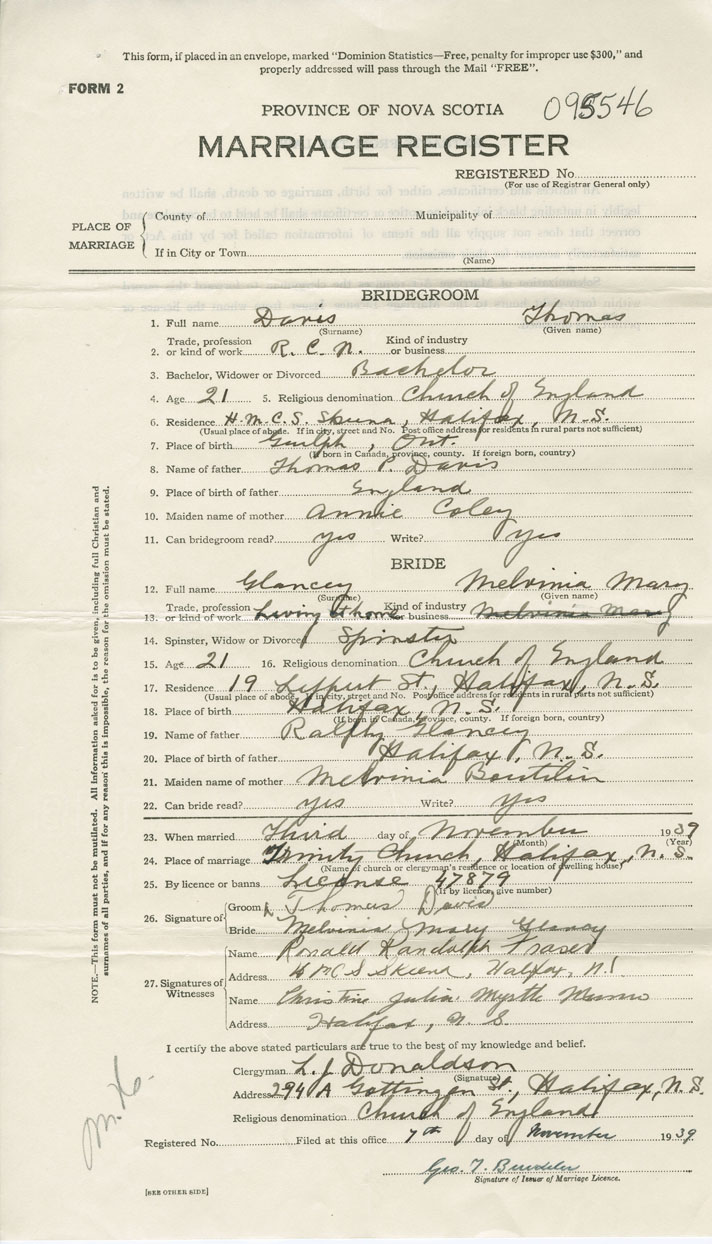 This form, if placed in an envelope, marked "Dominion Statistics—Free, penalty for improper use $300," and
properly addressed will pass through the Mail "FREE".
FORM 2
PROVINCE OF NOVA SCOTIA 095546
MARRIAGE REGISTER
REGISTERED No.
(For use of Registrar General only)
PLACE OF MARRIAGE
County of Municipality of
If in City or Town
(Name)
BRIDEGROOM
1. Full name Davis Thomas
(Surname) (Given name)
2. Trade, profession or kind of work R.C.N. Kind of industry or business
3. Bachelor, Widower or Divorced Bachelor
4. Age 21 5. Religious denomination Church of England
6. Residence H.M.C.S. Skeena, Halifax, N.S.
(Usual place of abode. If in city, street and No. Post office address for residents in rural parts not sufficient)
7. Place of birth Guelph, Ont.
(If born in Canada, province, county. If foreign born, country)
8. Name of father Thomas P. Davis
9. Place of birth of father England
10. Maiden name of mother Annie Coley
11. Can bridegroom read? yes Write? yes
BRIDE
12. Full name Glancey Melvinia Mary
(Surname) (Given name)
13. Trade, profession or kind of work Living at home Kind of industry or business Melvinia Mary
14. Spinster, Widow or Divorced Spinster
15. Age 21 16. Religious denomination Church of England
17. Residence 19 St., Halifax, N.S.
(Usual place of abode, if in city, street and No. Post office address for residents in rural parts not sufficient)
18. Place of birth Halifax, N.S.
(If born in Canada, province, county. If foreign born, country)
19. Name of father Ralph Glancey
20. Place of birth of father Halifax, N.S.
21. Maiden name of mother Melvinia Boutilin
22. Can bride read? yes Write? yes
23. When married Third day of November 1939
(Month) (Year)
24. Place of marriage Trinity Church, Halifax, N.S.
(Name of church or clergyman's residence or location of dwelling house)
25. By licence or banns License 47879
(If by licence, give number)
26. Signature of
Groom Thomas Davis
Bride Melvinia Mary Glancy
27. Signatures of Witnesses
Name Ronald Randolph Fraser
Address H M C S Skeena, Halifax, N.S.
Name Christine Julia Myrtle Munro
Address Halifax, N.S.
I certify the above stated particulars are true to the best of my knowledge and belief.
Clergyman L. J. Donaldson
(Signature)
Address 294 A Gottingen St., Halifax, N.S.
Religious denomination Church of England
Registered No. Filed at this office 7th day of November 1939
Geo. T.
Signature of Issuer of Marriage Licence.
[SEE OTHER SIDE]
NOTE.—This form must not be mutilated. All information asked for is to be given, including full Christian and
surnames of all parties, and if for any reason this is impossible, the reason for the omission must be stated.